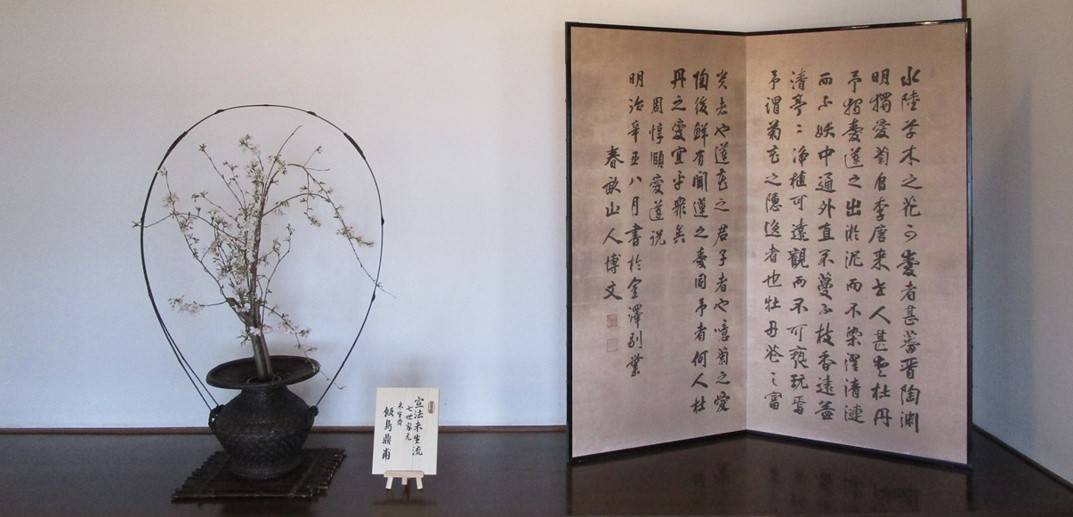 水陸草木之花可愛者甚蕃晋陶淵
明獨愛菊自李唐来世人甚愛牡丹
予獨愛蓮之出淤泥而不染濯清漣
而不妖中通外直不蔓不枝香遠益
清亭々浄植可遠觀而不可褻玩焉
予謂菊花之隠逸者也牡丹花之富
貴者也蓮花之君子者也噫菊之愛
陶後鮮有聞蓮之愛同予者何人牡
丹之愛宜乎衆矣
周惇頤愛蓮説
明治辛丑八月書於金澤別業
春畝山人博文
宣法未生流
七世家元
飯島鼎甫